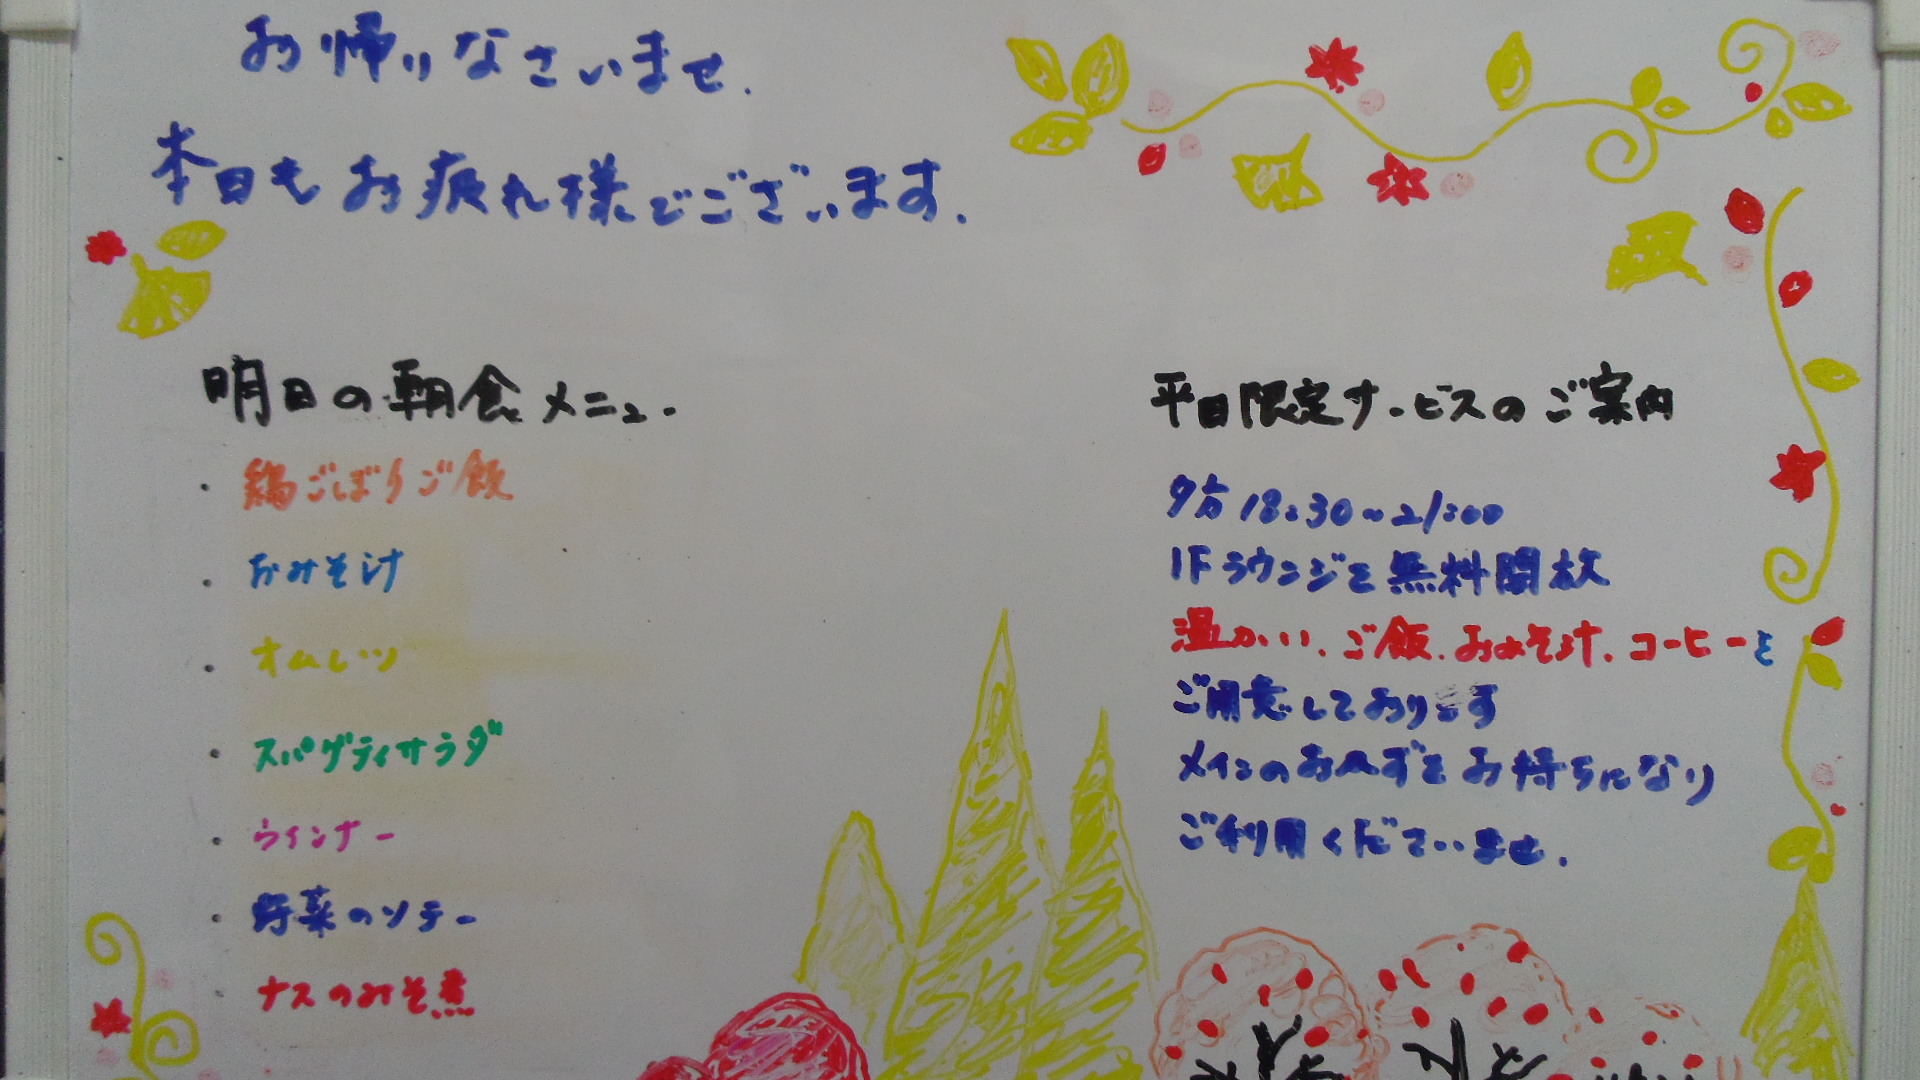 お帰りなさいませ.
本日もお疲れ様でございます.
明日の朝食メニュー
・鶏ごぼうご飯
・おみそ汁
・オムレツ
・スパゲティサラダ
・ウインナー
・野菜のソテー
・ナスのみそ煮
平日限定サービスのご案内
夕方18:30~21:00
1Fラウンジを無料開放
温かい、ご飯、おみそ汁、コーヒーを
ご用意しております
メインのおかずをお持ちになり
ご利用くださいませ.